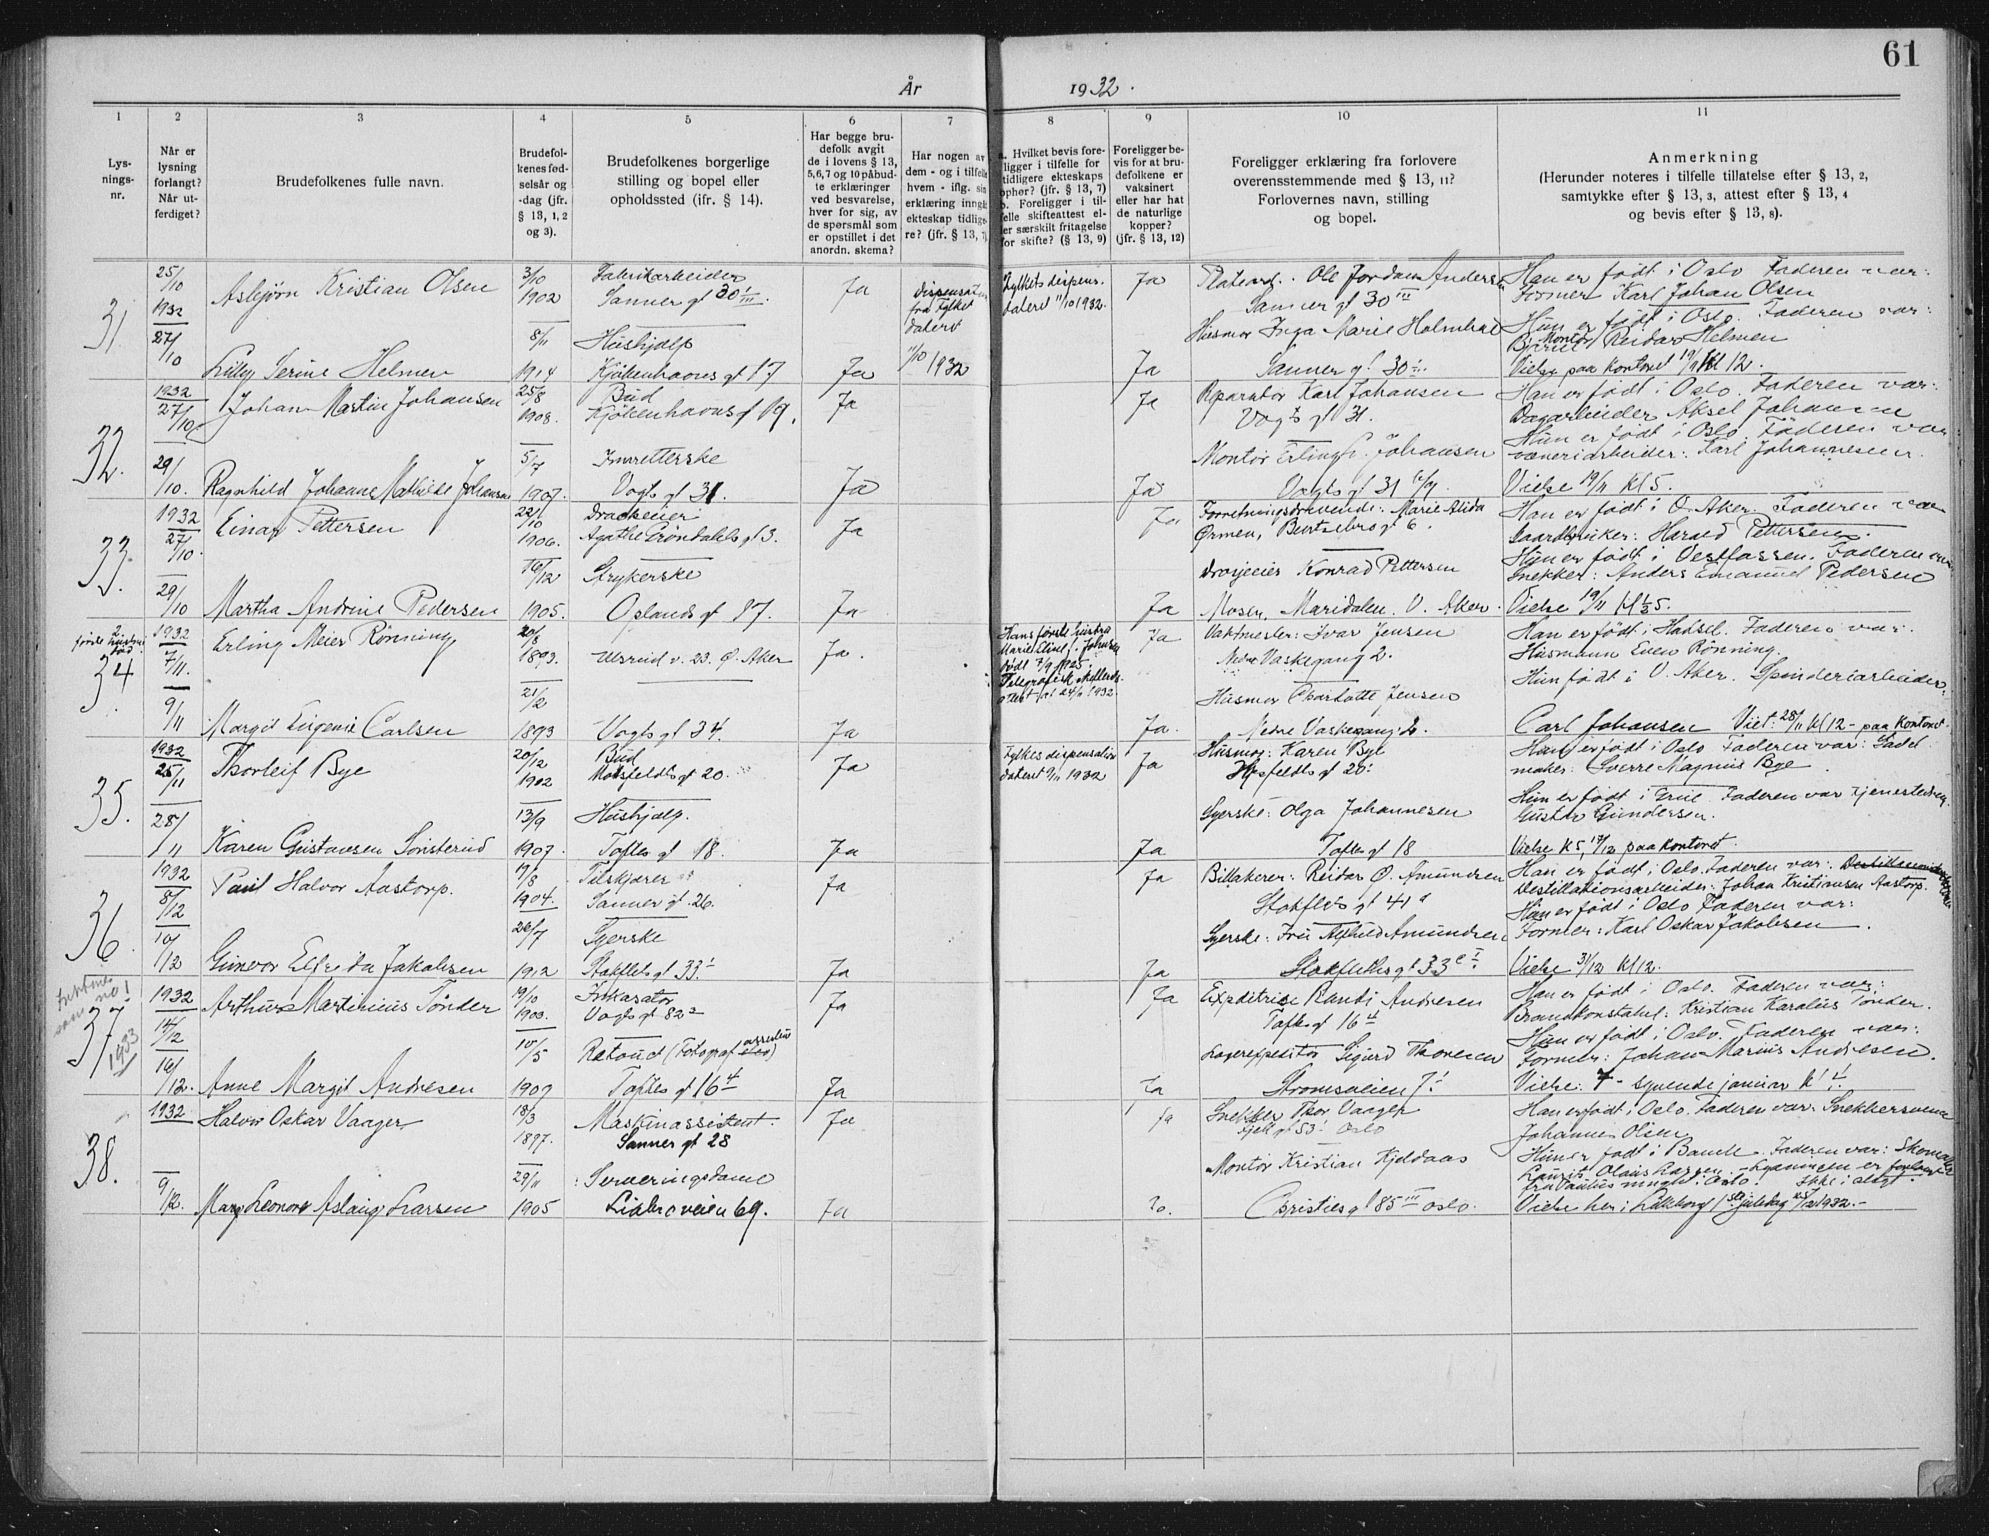 61
År 1932.
1 2 3 4 5 6 7 8 9 10 11
Lys-
nings-
nr.
Når er
lysning
forlangt?
Når ut-
ferdiget?
Brudefolkenes fulle navn.
Brudefol-
kenes fød-
selsår og
-dag (jfr.
§ 13, 1, 2
og 3).
Brudefolkenes borgerlige
stilling og bopel eller
opholdssted (ifr. § 14).
Har begge bru-
defolk avgit
de i lovens § 13,
5, 6, 7 og 10 påbud-
te erklæringer
ved besvarelse,
hver for sig, av
de spørsmål som
er opstillet i det
anordn. skema?
Har nogen av
dem - og i tilfelle
hvem - iflg. sin
erklæring inngå
ekteskap tidlige-
re? (jfr. § 13, 7)
a. Hvilket bevis fore-
ligger i tilfelle for
tidligere ekteskaps
ophør? (jfr. § 13, 7)
b. Foreligger i til-
felle skifteattest el-
ler særskilt fritagelse
for skifte? (§ 13, 9)
Foreligger be-
vis for at bru-
defolkene er
vaksinert
eller har hat
de naturlige
kopper?
(jfr. § 13, 12)
Foreligger erklæring fra forlovere
overensstemmende med § 13, 11?
Forlovernes navn, stilling
og bopel.
Anmerkning
(Herunder noteres i tilfelle tillatelse efter § 13, 2,
samtykke efter § 13, 3, attest efter § 13, 4
og bevis efter § 13, 8).
31.
25/10 1932
27/10
Asbjørn Kristian Olsen
3/10 1902
Fabrikarbeider
Sanner gt 30 III.
Ja
Dispensation
fra Fylket
datert
11/10 1932
Fylkets dispens.
dateret 11/10 1932.
Ja
Ole Jordan Andersen
Sanner gt 30 III
Han er født i Oslo Faderen var:
Former Karl Johan Olsen
Lilly Serine Helmen
8/11 1914
Hushjælp
Kjøbenhavns gt 17
Ja
Ja
Husmor Inga Marie
Sanner gt 30 III
Hun er født i Oslo. Faderen var:
Montør Reidar Helmen
Vielse paa kontoret 19/11 kl 12.
32.
1932
27/10
29/10.
Johan Martin Johansen
25/8 1908.
Bud
Kjøbenhavns gt 19.
Ja
Ja
Reparatør Karl Johansen
Vogts gt 31.
Han er født i Oslo. Faderen var:
Aksel Johansen
Ragnhild Johanne Mathilde Johansen
5/7 1907.
Vogts gt 31.
Ja
Ja
Montør Erling Johansen
Vogts gt 31
Hun er født i Oslo. Faderen var
Karl Johannesen.
Vielse 19/11 kl 5.
33.
1932
27/10.
29/10
Einar Pettersen
22/10 1906.
Agathe Grøndahls gt 3.
Ja
Ja
Forretningsdrivende: Marie Alida
Ørmen, Bentsebro gt 6.
Han er født i Ø. Aker. Faderen var
Gaardbruker: Harald Pettersen.
Martha Andrine Pedersen
16/12 1905.
Strykerske
Oslands gt 17.
Ja
Ja
Drosjeeier Konrad Pettersen
Mosen, Maridalen. V. Aker.
Hun er født i Vestfossen. Faderen var
Snekker: Anders Emanuel Pedersen
Vielse 19/11 kl ½5.
første hustru
død
34.
1932
7/11.
9/11
Erling Meier Rønning
20/8 1893.
Ulsrud v. 23. Ø. Aker
Ja.
Hans første hustru
Marie Johansen
død 3/9 1925.
Telegrafisk skifte-
attest
Ja
Vaktmester: Ivar Jensen
Nedre Vaskegang 2.
Han er født i Hadsel. Faderen var:
Husmann Even Rønning.
Margit Eugenie Carlsen
21/2 1893
Vogts gt 34.
Ja
Ja.
Husmor Charlotte Jensen
Nedre Vaskegang 2.
Hun født i V. Aker. Spinderiarbeider:
Carl Johansen Viet: 28/11 kl 12 - paa kontoret
35.
1932
25/11
28/11
Thorleif Bye
20/12 1902
Bud
Motzfeldts gt 20.
Ja
Fylkes dispensation
dateret 9/11 1932
Ja
Husmor: Karen Bye
Han er født i Oslo Faderen var: Sadel-
maker: Sverre Magnus Bye.
Karen Gustavsen Sønsterud
13/9 1907.
Hushjælp.
Toftes gt 18.
Ja
Ja
Syerske: Olga Johannesen
Toftes gt 18
Hun er født i Grue. Faderen var tjenestedreng
Gustav Gundersen.
Vielse kl 5, 17/12 paa kontoret.
36.
1932
8/12
10/12
Paul Halvor Aastorp.
17/8 1904.
Tilskjærer
Sanner gt. 26.
Ja
Ja
Billakerer: Reidar Ø. Amundsen
Stokflets gt 41 a
Han er født i Oslo. Faderen var:
Destillationsarbeider: Johan Kristiansen Aastorp.
Gunvor Elfrida Jakobsen
26/7 1912
Syerske
Stokflets gt 33 I
Ja
Ja
Syerske: Fru Amundsen
Stokfleths gt 33 c I.
Hun er født i Oslo Faderen var:
Former: Karl Oskar Jakobsen.
Vielse 31/12 kl 12.
som no 1
1933
37.
1932
14/12
16/12.
Arthur Martinius Tønder
19/10 1903.
Inkasator
Vogts gt 82
Ja
Ja
Expeditrise Randi Andresen
Toftes gt 16 4
Han er født i Oslo. Faderen var:
Brandkonstabel: Kristian Karelius Tønder.
Anne Margit Andresen
10/5 1907
Toftes gt 16 4
Ja
Ja
Lagerexpeditør Sigurd Thoresen
Strømsveien 7 I
Hun er født i Oslo. Faderen var:
Former: Johan Marius Andresen.
Vielse: 7 - syvende januar kl
38.
1932
9/12.
Halvor Oskar Vaager
18/3 1897.
Maskinassistent.
Sanner gt 28
Ja
Ja
Snekker Thor Vaager
Oslo
Han er født i Oslo. Faderen var: Snekkersvend
Johannes Olsen
Mary Leonore Aslaug Larsen
29/11 1905
Serveringsdame
Liabroveien 69.
Ja
Ja.
Montør Kristian Kjeldaas
Christies gt 85 III Oslo.
Hun er født i Bamle. Faderen var: Skomaker
Laurits Olaus Larsen. - Lysningen er forlangt
fra Paulus menighet i Oslo. Ikke i
Vielse her i Lilleborg 1ste juledag 25/12 1932.-